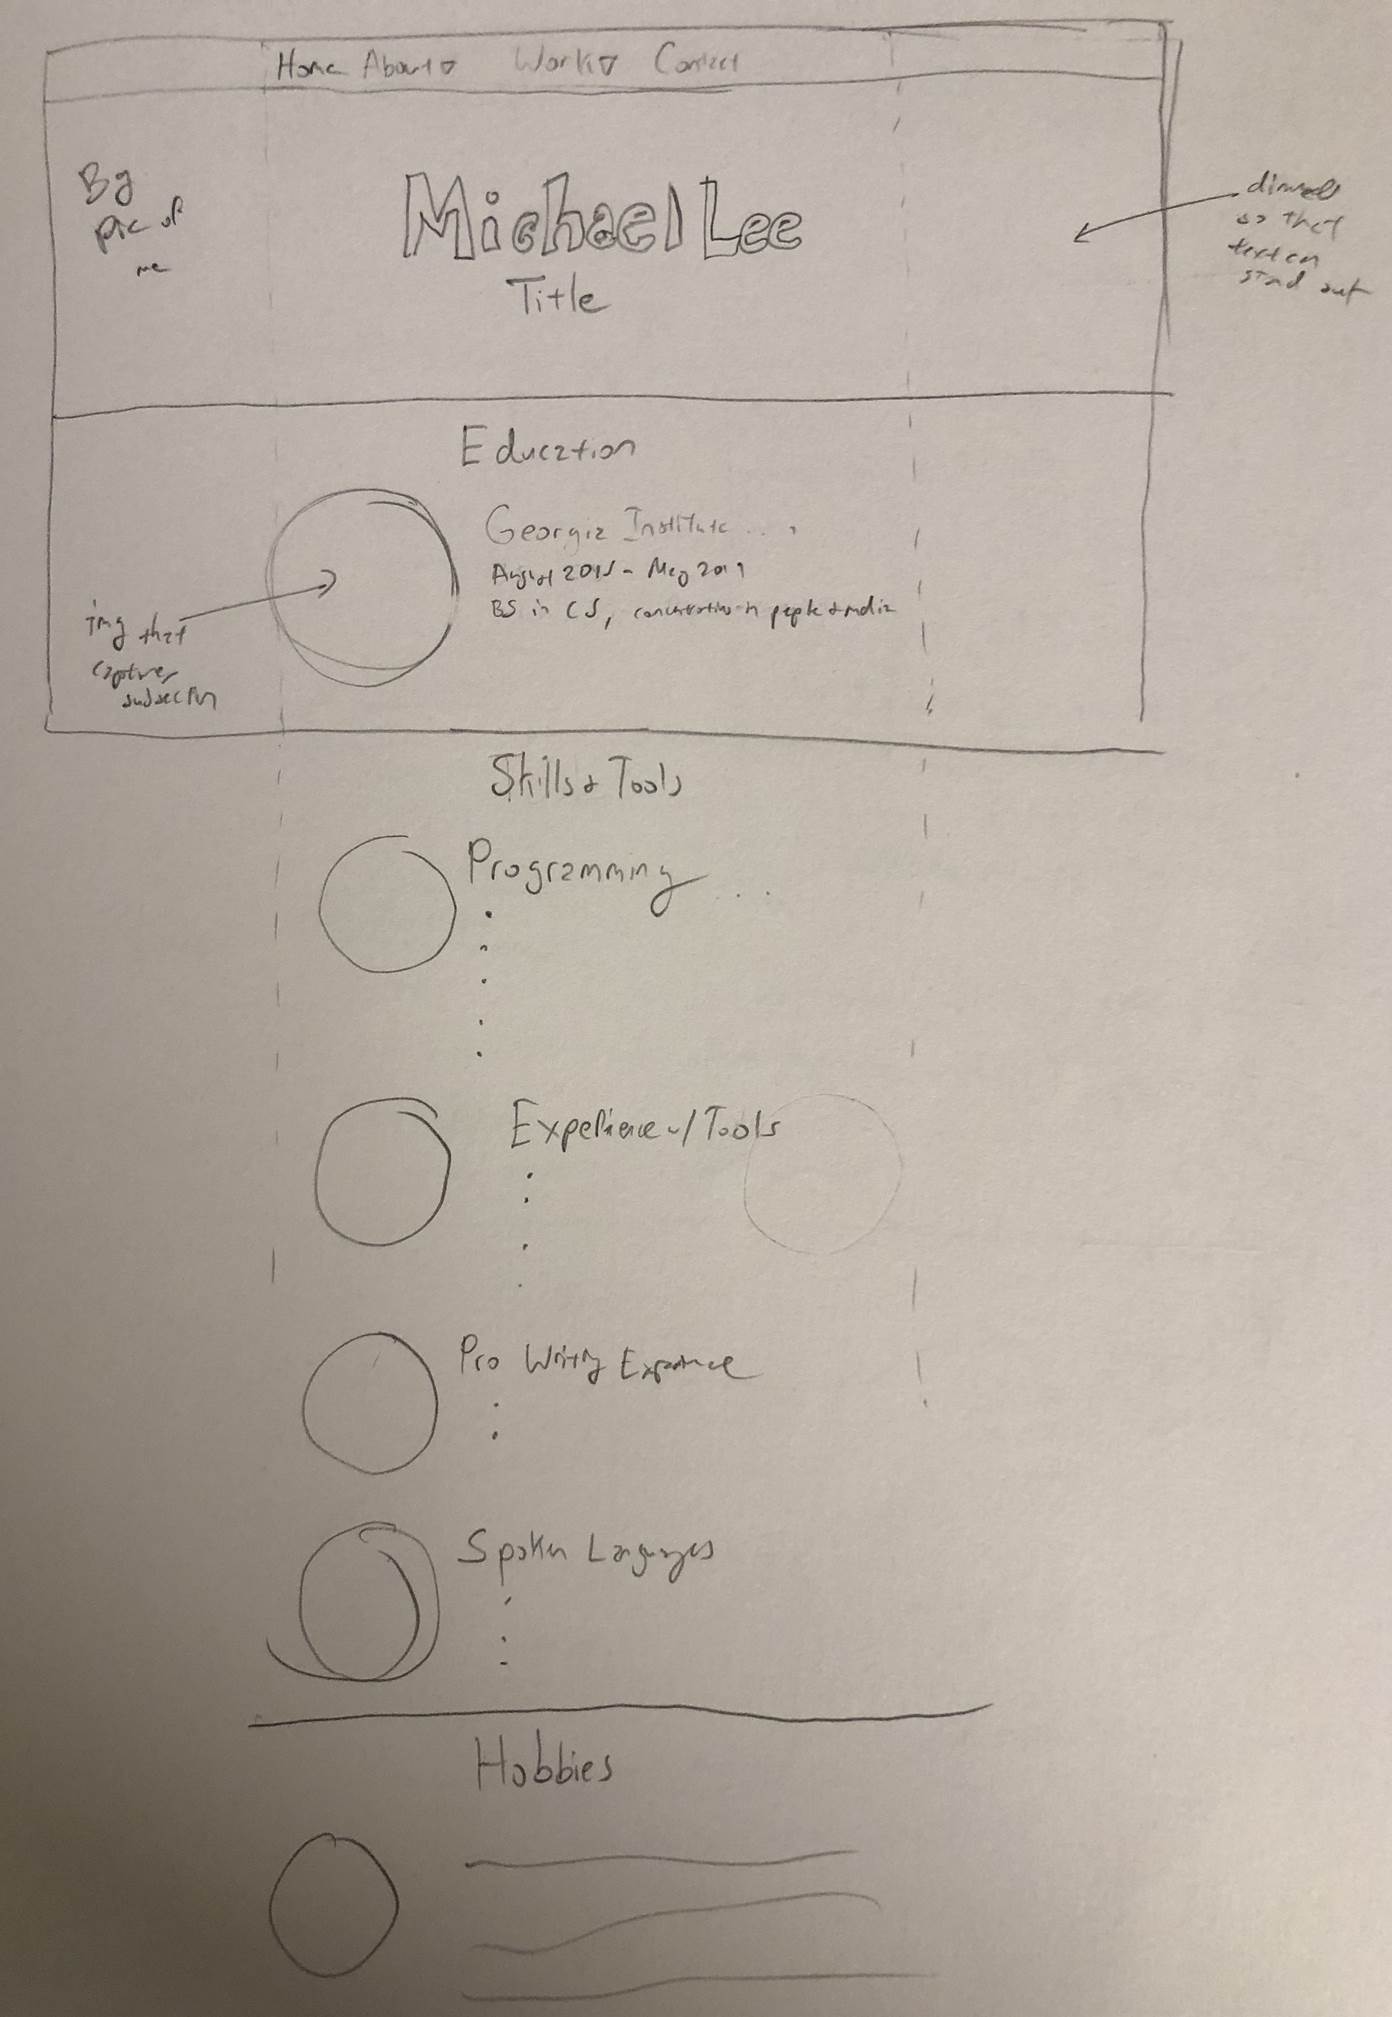 Home About ▽ Work ▽ Contact
Bg
pic of
me
Michael Lee
Title
dimmed
so that
text can
stand out
Education
Georgia Institute ...
August 2015 - May 2019
BS in CS, concentration in people & media
img that
captures
subsection
Skills & Tools
Programming ...
Experience w/ Tools
Pro Writing Experience
Spoken Languages
Hobbies